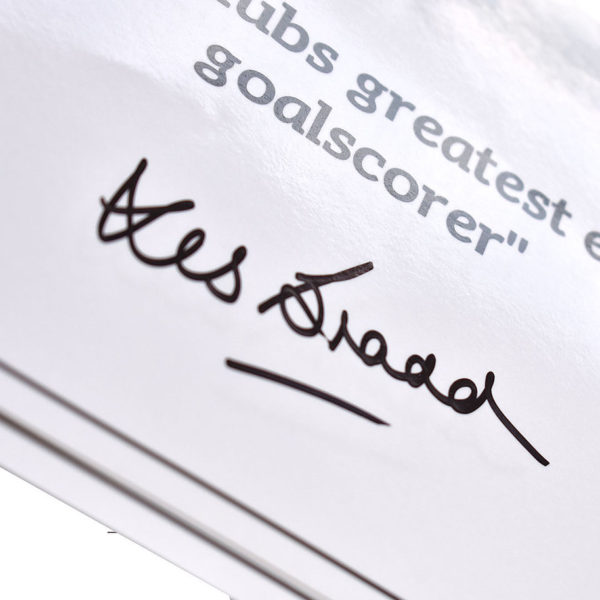 lubs greatest e
goalscorer"
Les Bradd